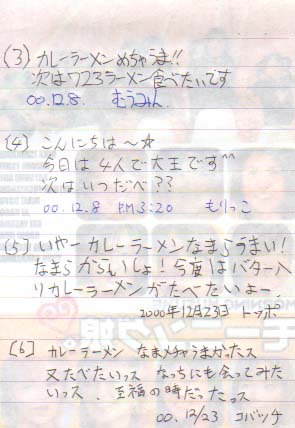 (3) カレーラーメンめちゃうま!!
次はワ23ラーメン食べたいです
00.12.8. むうみん
(4) こんにちは～☆
今日は4人で大王です^^
次はいつだべ??
00.12.8 P.M 3:20 もりっこ
(5) いやーカレーラーメンなまらうまい!
なまらからいしょ!今度はバター入
りカレーラーメンがたべたいよー.
2000年12月23日 トッポ
(6) カレーラーメン なまメチャうまかったス
又たべたいっス なっちにも会ってみた
いっス. 至福の時だったっス
00.12/23 コバッチ
モーニング娘。